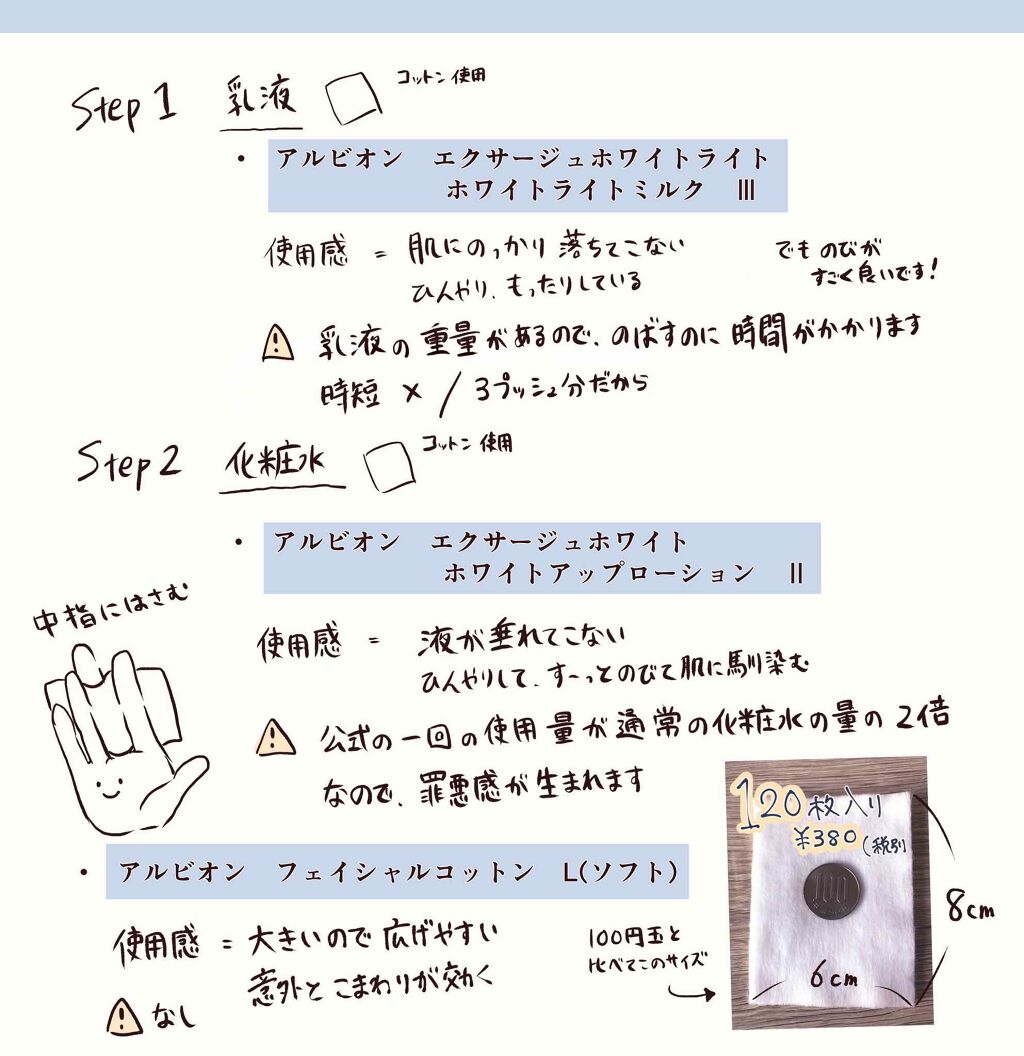 Step 1 乳液 コットン使用
・ アルビオン エクサージュホワイトライト
ホワイトライトミルク Ⅲ
使用感 = 肌にのっかり落ちてこない
ひんやり、もったりしている
でものびが
すごく良いです!
乳液の重量があるので、のばすのに時間がかかります
時短 × / 3プッシュ分だから
Step 2 化粧水 コットン使用
・ アルビオン エクサージュホワイト
ホワイトアップローション Ⅱ
中指にはさむ
使用感 = 液が垂れてこない
ひんやりして、すーっとのびて肌に馴染む
公式の一回の使用量が通常の化粧水の量の2倍
なので、罪悪感が生まれます
・ アルビオン フェイシャルコットン L(ソフト)
使用感 = 大きいので広げやすい
意外とこまわりが効く
なし
100円玉と
比べてこのサイズ
120枚入り
¥380(税別
100
8cm
6cm